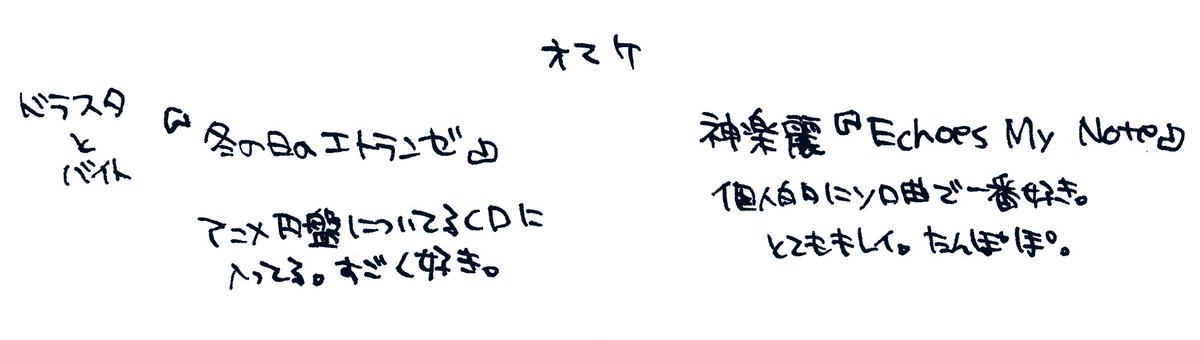 オマケ
ドラスタ
と
バイト
『冬の日のエトランゼ』
アニメ円盤についてるCDに
入ってる。すごく好き。
神楽麗『Echoes My Note』
個人的にソロ曲で一番好き。
とてもキレイ。たんぽぽ。